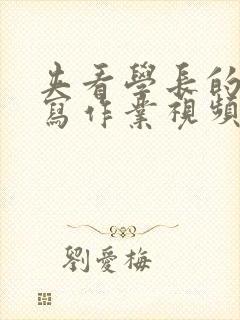 夹看學長的
寫作業視頻
劉愛梅